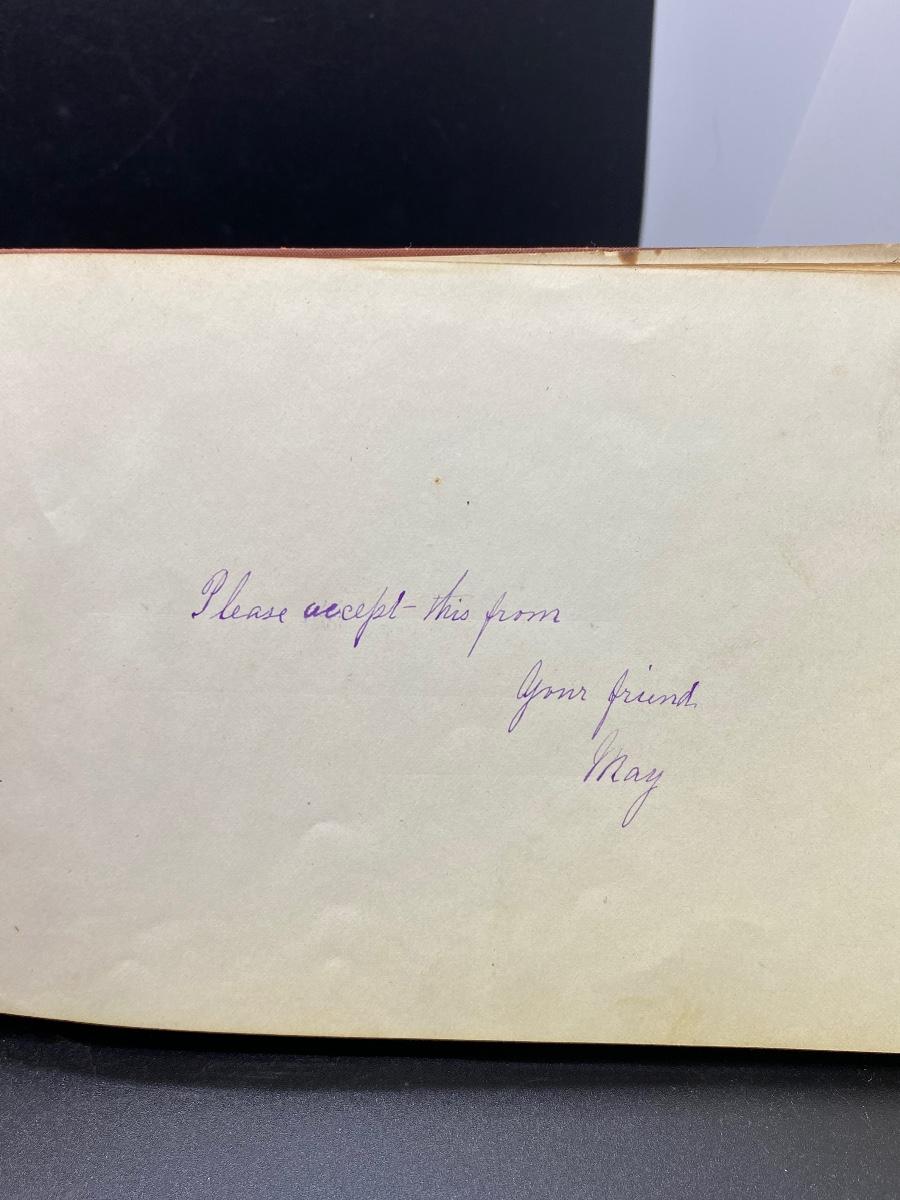 Please accept this from
Your friend
May